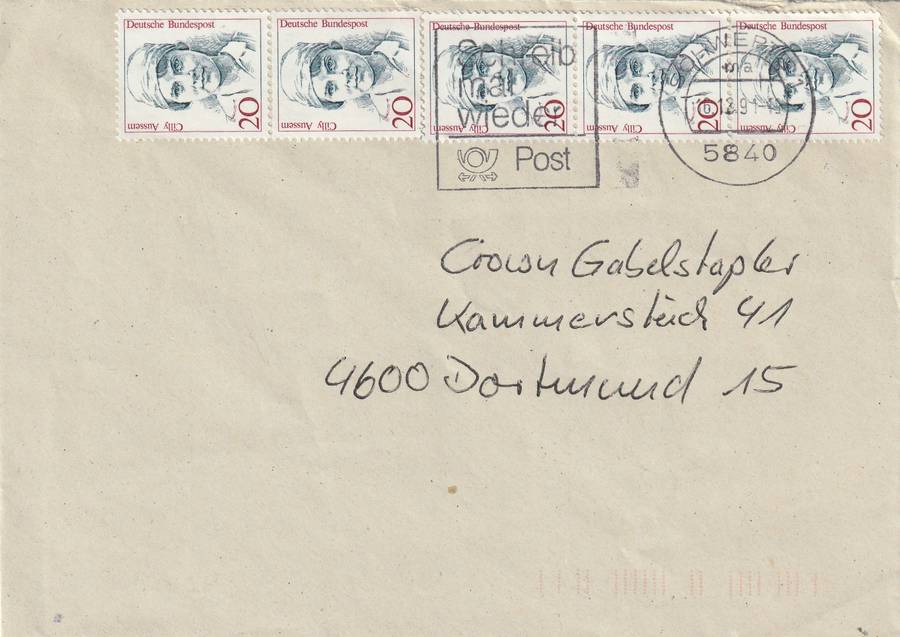 Deutsche Bundespost Deutsche Bundespost Deutsche Bundespost Deutsche Bundespost Deutsche Bundespost
20 20 20 20 20
Cilly Aussem Cilly Aussem Cilly Aussem Cilly Aussem Cilly Aussem
Schreib
mal
wieder
Post
SCHWERTE
ma
16.12.91
5840
Crown Gabelstapler
Kammerstück 41
4600 Dortmund 15